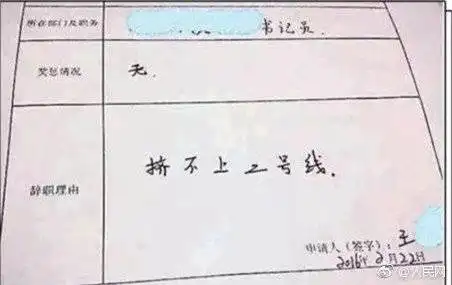 所在部门及职务 书记员.
奖惩情况 无.
辞职理由 挤不上二号线.
申请人（签字）：王
2016年2月22日
@人民网